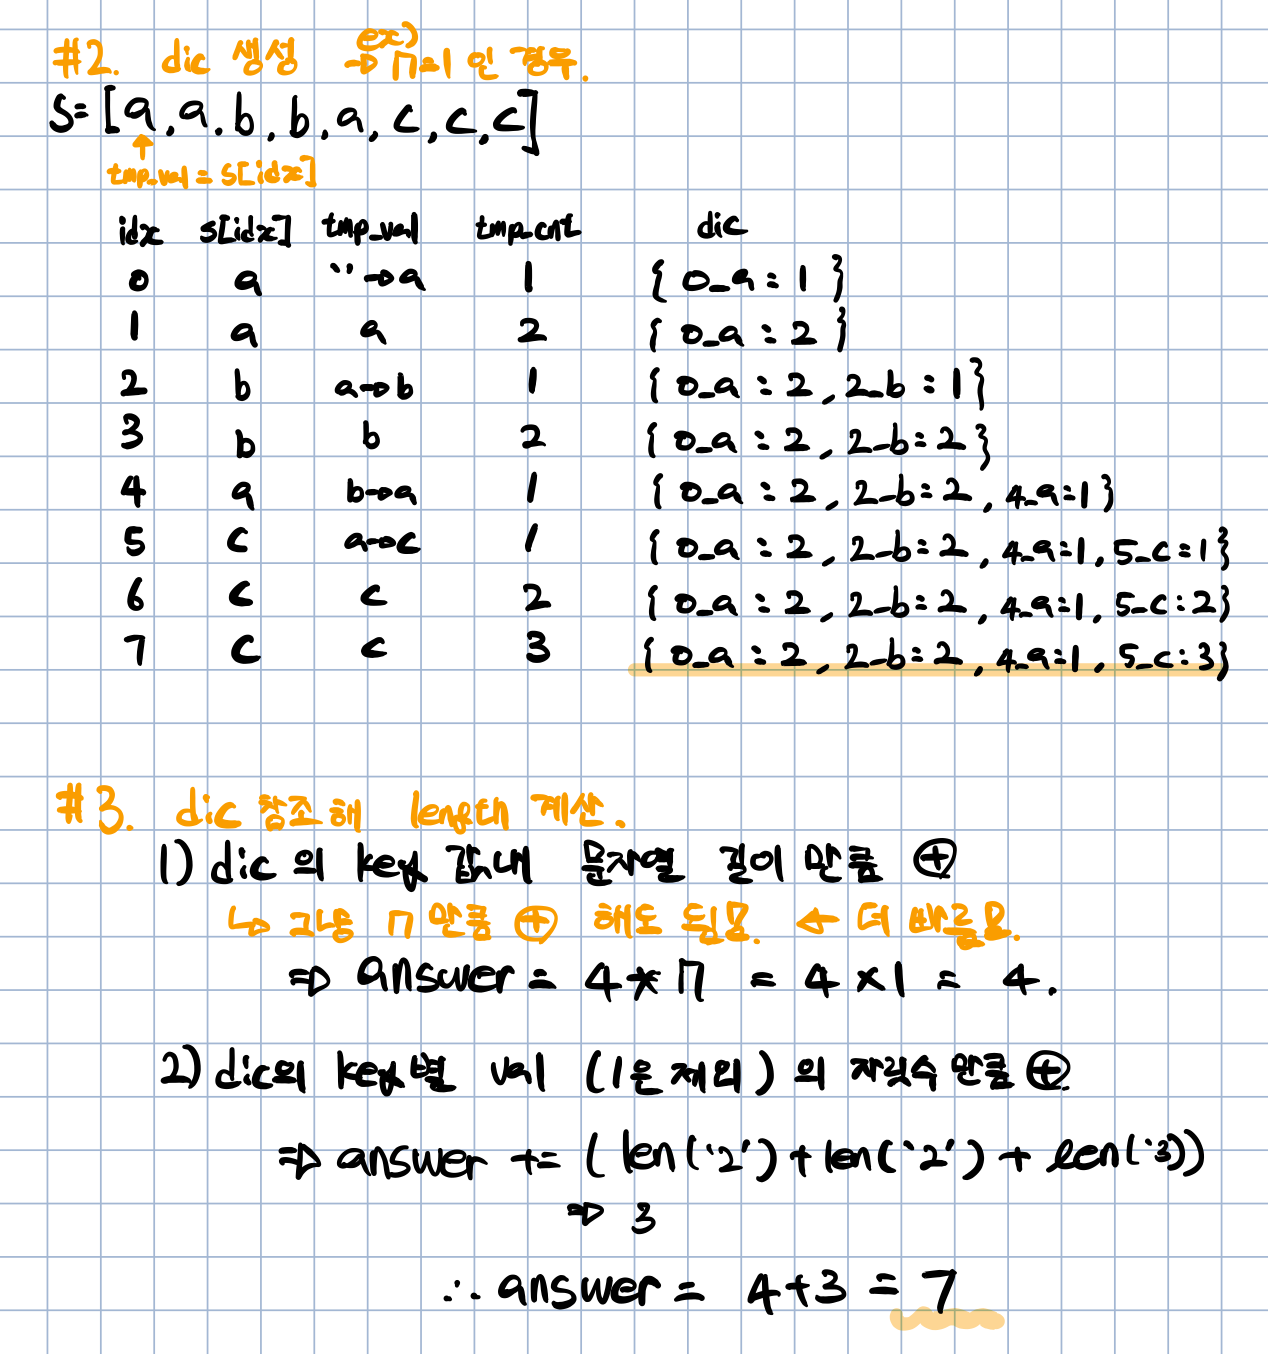 #2. dic 생성 ex) → n=1 인 경우.
S= [a, a, b, b, a, c, c, c]
↑
tmp_val = s[idx]
idx s[idx] tmp_val tmp_cnt dic
0 a ''→a 1 { 0_a : 1 }
1 a a 2 { 0_a : 2 }
2 b a→b 1 { 0_a : 2 , 2_b : 1}
3 b b 2 { 0_a : 2 , 2_b : 2 }
4 a b→a 1 { 0_a : 2 , 2_b : 2 , 4_a : 1 }
5 c a→c 1 { 0_a : 2 , 2_b : 2 , 4_a : 1 , 5_c : 1}
6 c c 2 { 0_a : 2 , 2_b : 2 , 4_a : 1 , 5_c : 2}
7 c c 3 { 0_a : 2 , 2_b : 2 , 4_a : 1 , 5_c : 3}
#3. dic 참조해 length 계산.
1) dic 의 key 값내 문자열 길이 만큼 ⊕
↳ 그냥 n 만큼 ⊕ 해도 됨요. ← 더 빠를요.
⇒ answer = 4*n = 4×1 = 4.
2) dic의 key별 val (1은 제외) 의 자릿수 만큼 ⊕
⇒ answer += ( len('2') + len('2') + len('3))
⇒ 3
∴ answer = 4+3 = 7